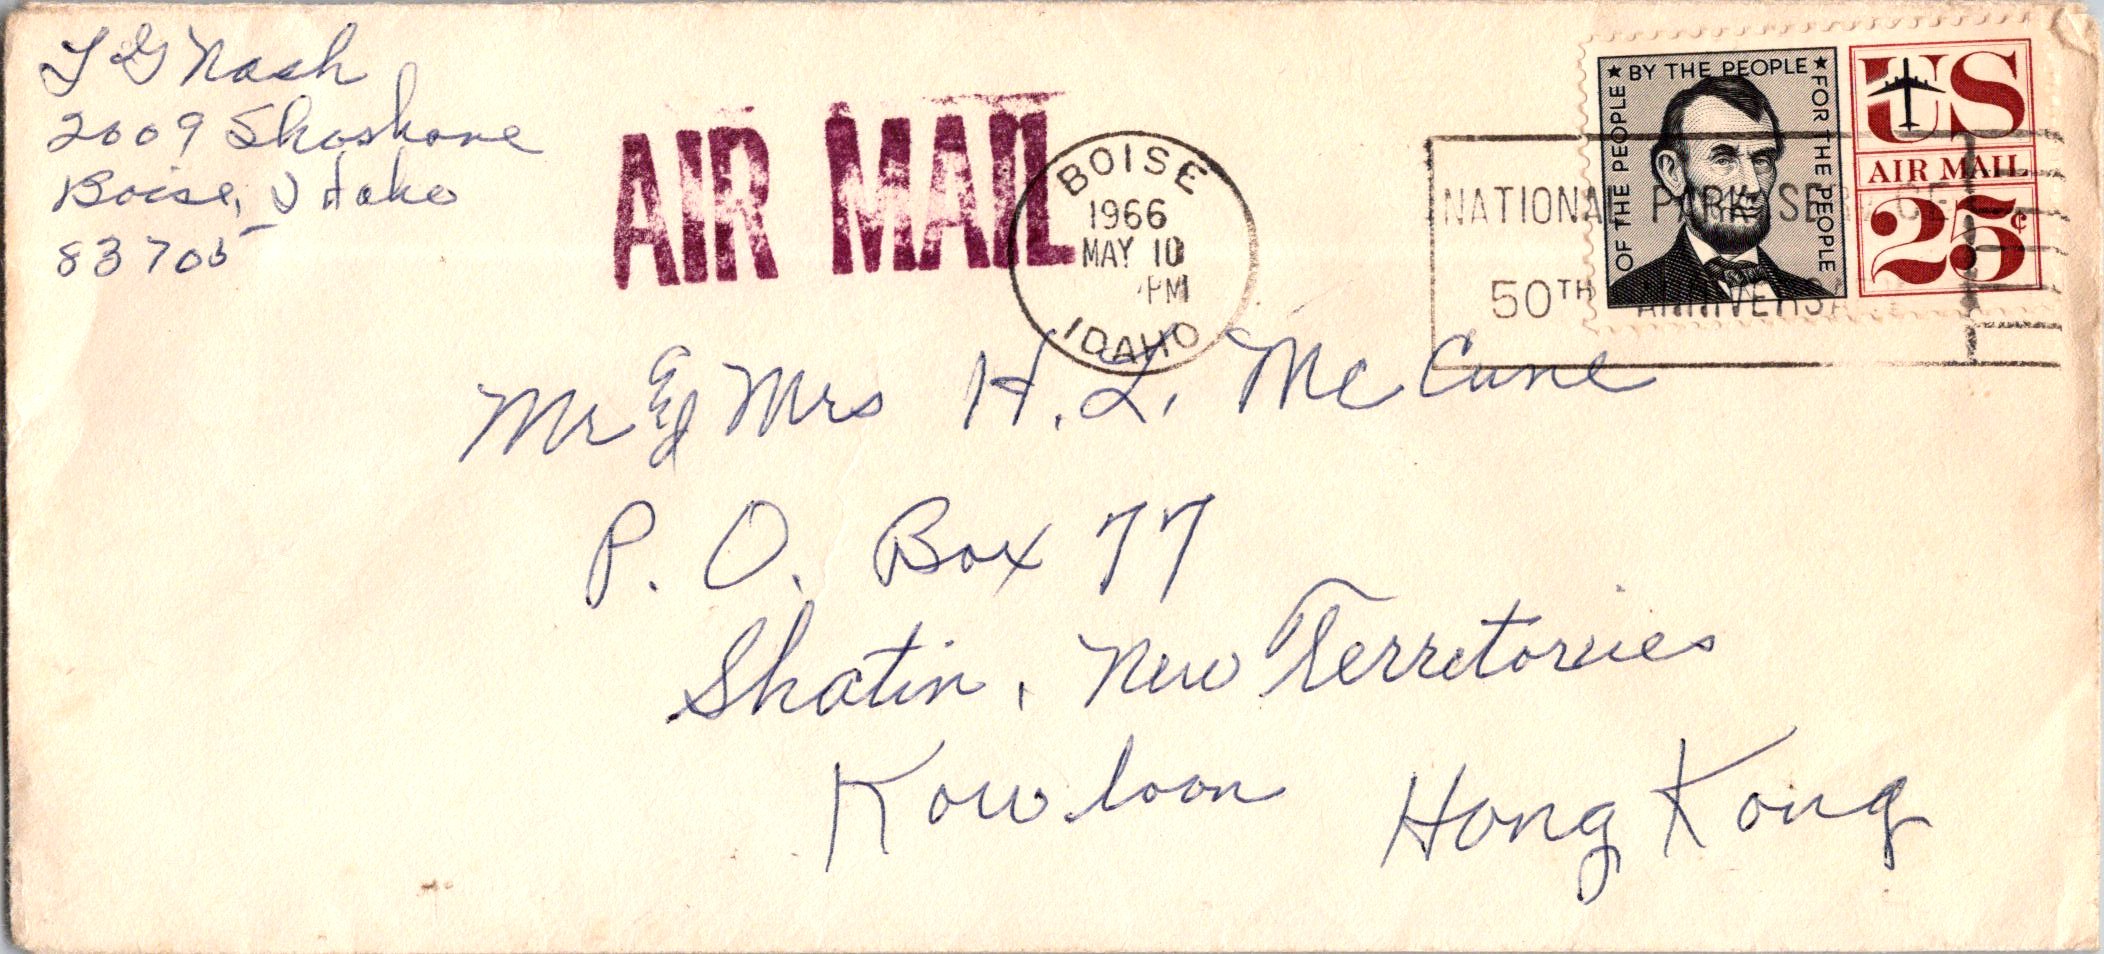 T G Nash
2009 Shoshone
Boise, Idaho
83705
AIR MAIL
BOISE
1966
MAY 10
PM
IDAHO
NATIONAL PARK SERVICE
50TH ANNIVERSA
OF THE PEOPLE ★ BY THE PEOPLE ★ FOR THE PEOPLE
US
AIR MAIL
25¢
Mr & Mrs H. L. McCune
P. O. Box 77
Shatin, New Territories
Kowloon Hong Kong